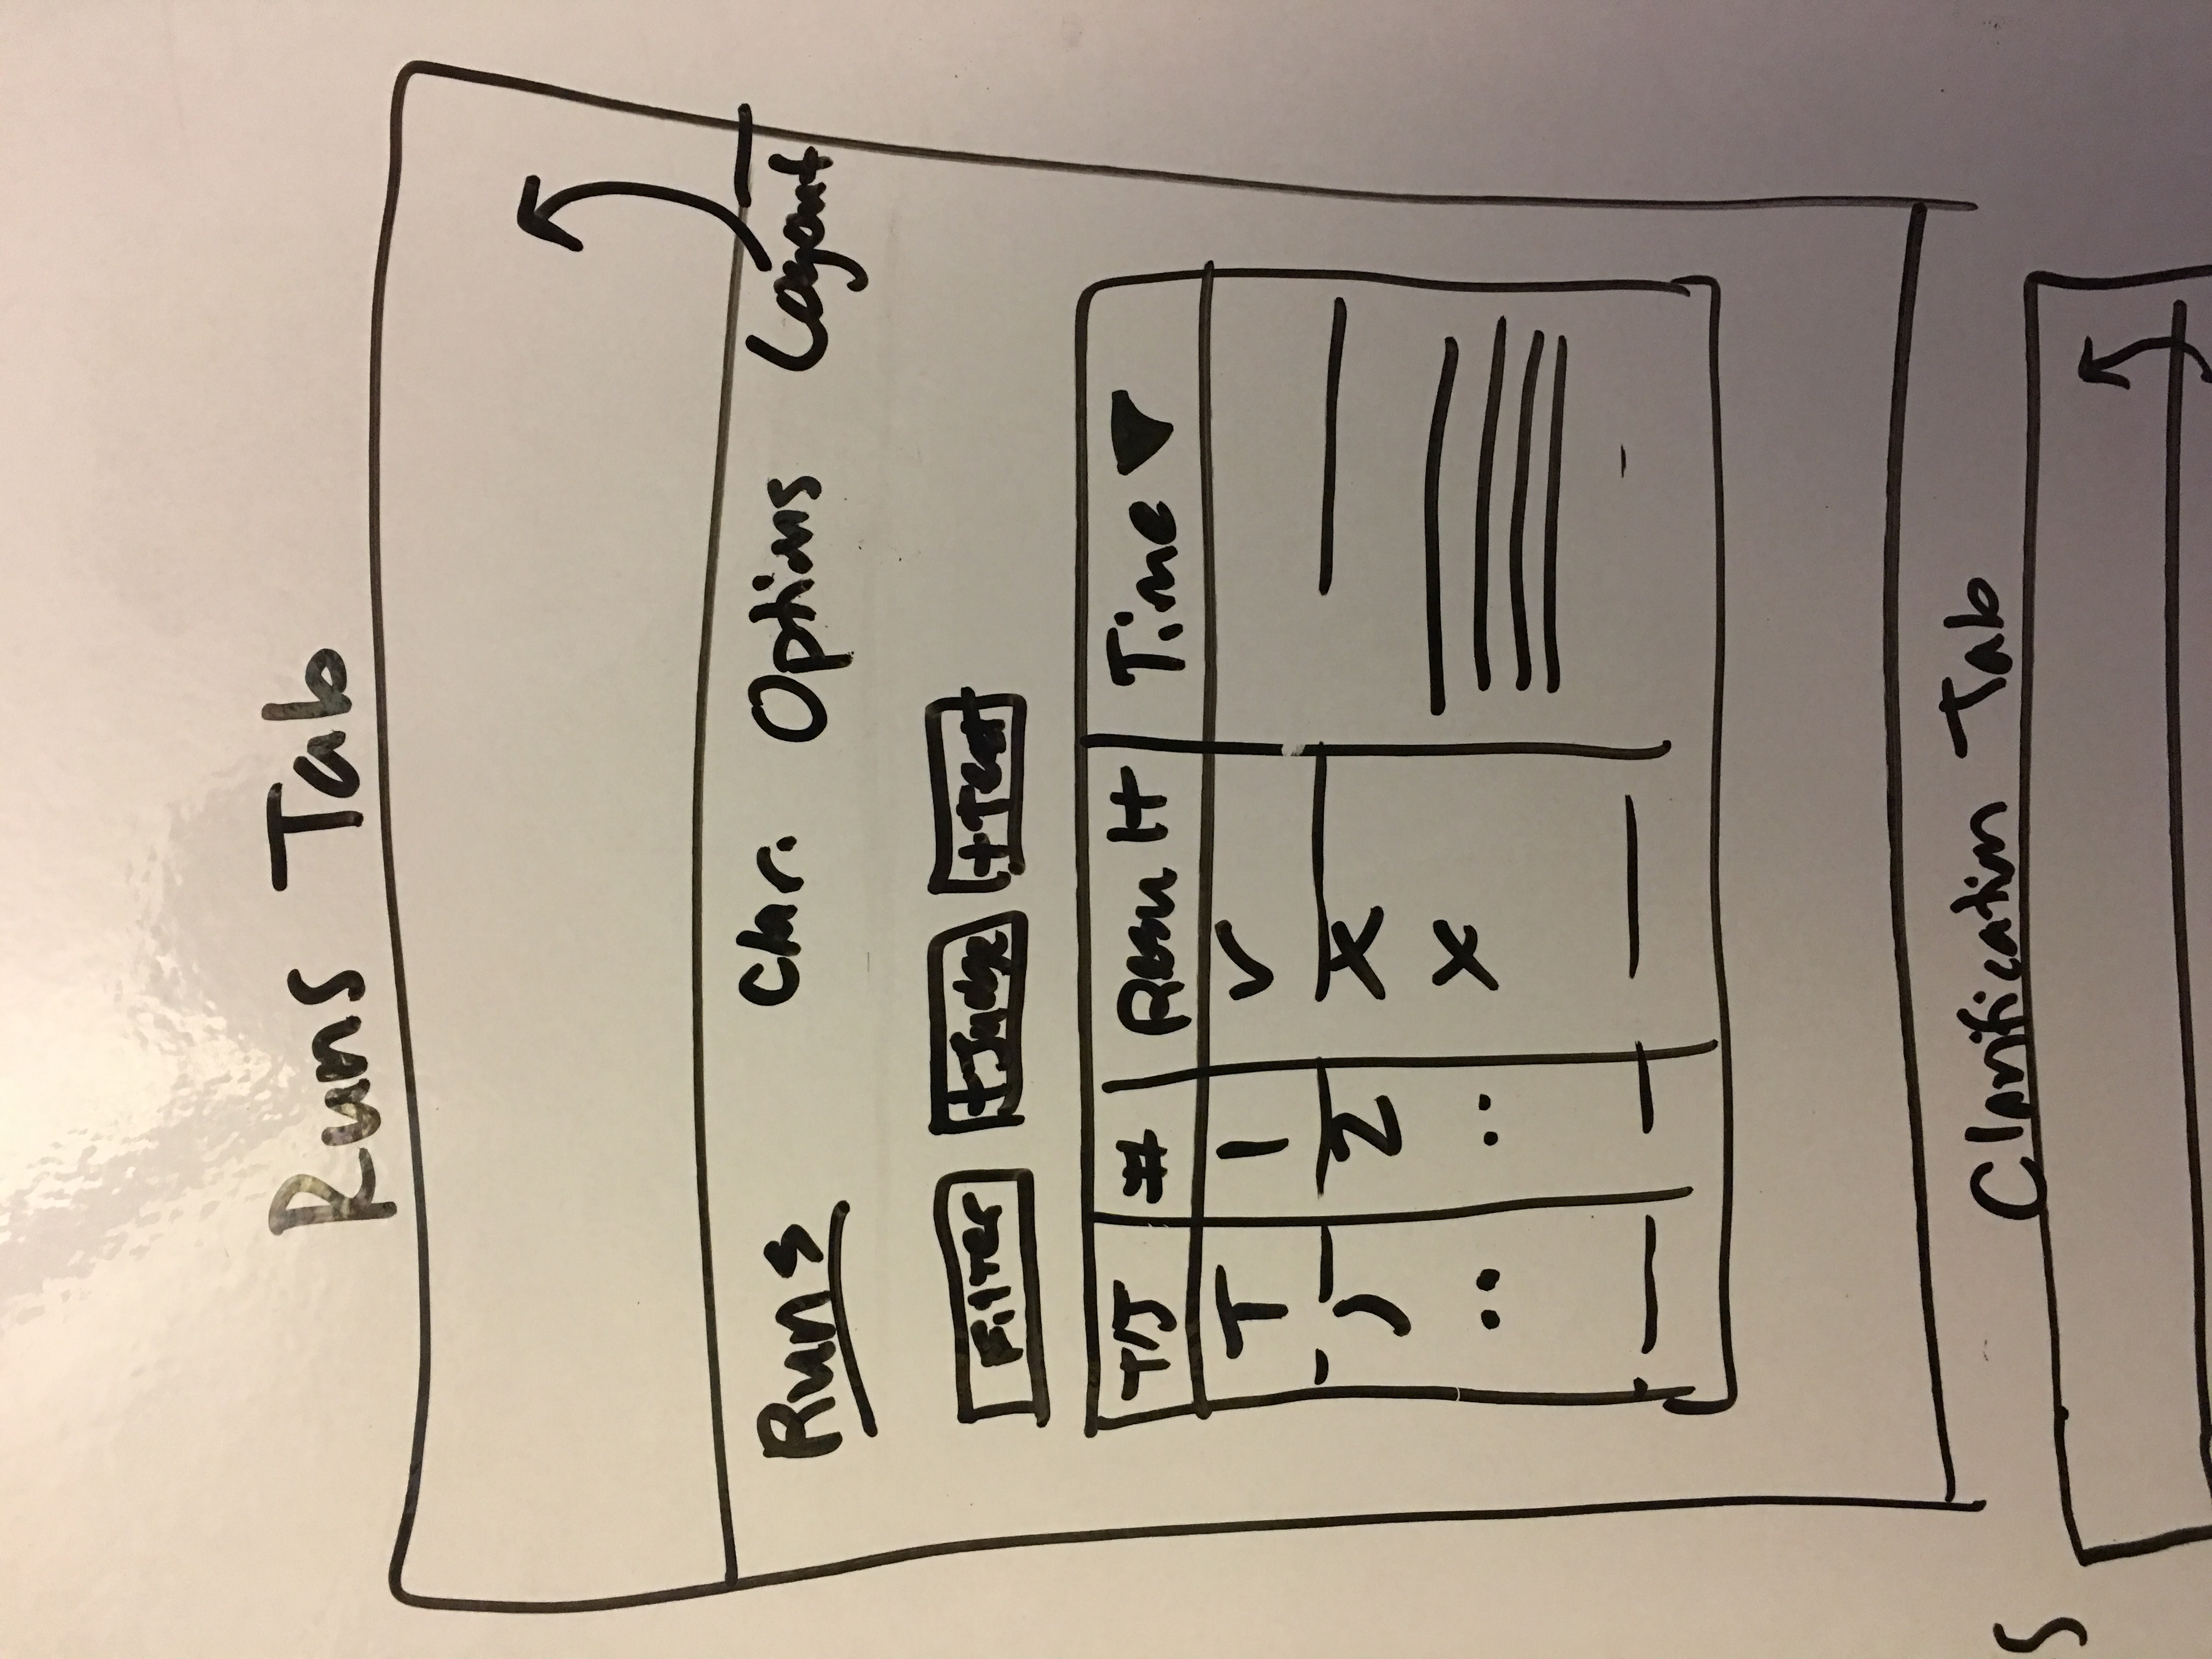 Runs Tab
Runs Clar. Options Logout
Filter +Judge +Test
T/J # Result Time ▼
T 1 ✓
J 2 X
.. .. X
Clarification Tab
S